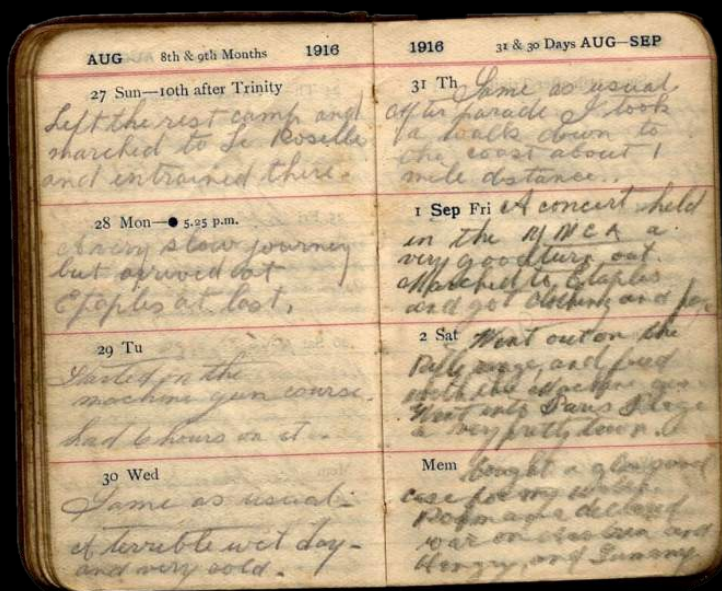 AUG 8th & 9th Months 1916
27 Sun—10th after Trinity
Left the rest camp and
marched to Le Roselle
and entrained there.
28 Mon—● 5.25 p.m.
A very slow journey
but arrived at
Etaples at last.
29 Tu
Started in the
machine gun course.
had 6 hours on it.
30 Wed
Same as usual.
A terrible wet day
and very cold.
1916 31 & 30 Days AUG—SEP
31 Th Same as usual
After parade I took
a walk down to
the coast about 1
mile distance.
1 Sep Fri A concert held
in the Y M C A a
very good turn out.
Marched to Etaples
and got clothing and
2 Sat Went out on the
range, and fired
with the Machine gun
Went into Paris Plage
a very pretty town.
Mem bought a
case for my watch.
declared
war on and
Hungry, and